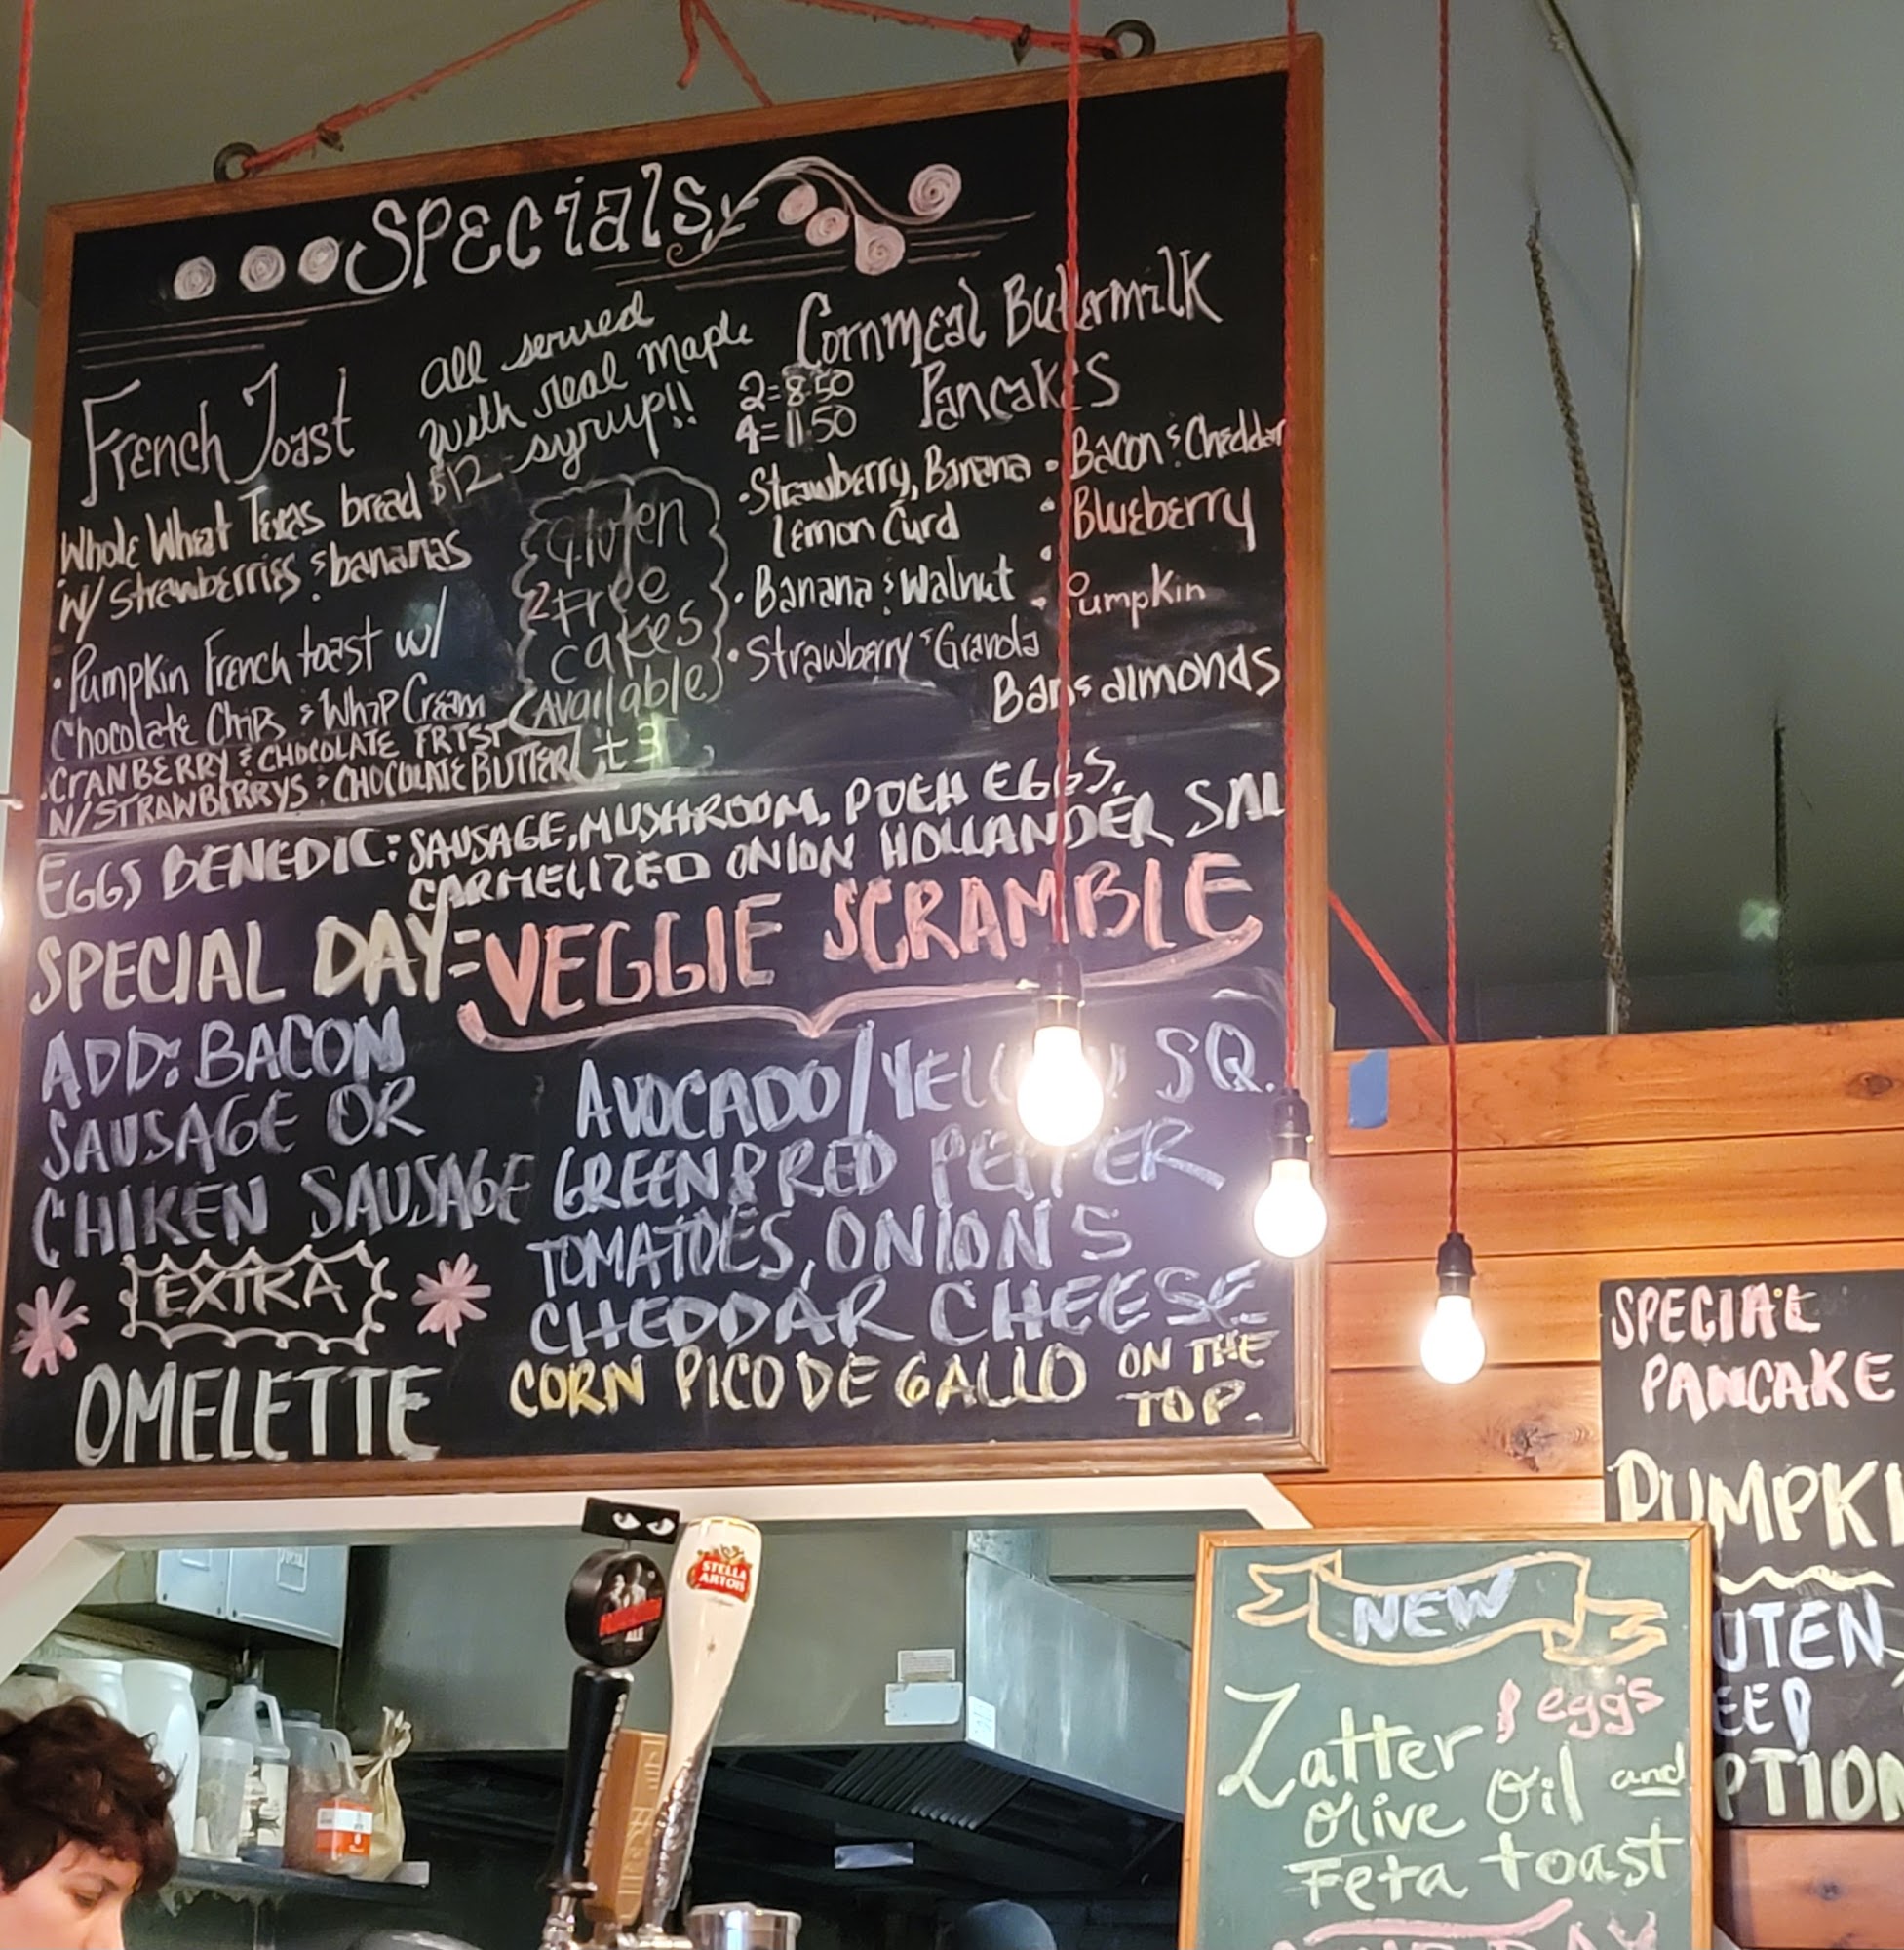 Specials
all served
with real maple
syrup!!
French Toast
$12
Whole Wheat Texas bread
w/ strawberries & bananas
• Pumpkin French toast w/
Chocolate Chips & Whip Cream
• CRANBERRY & CHOCOLATE FRTST
W/ STRAWBERRYS & CHOCOLATE BUTTER
Gluten
Free
cakes
(Available)
+3
Cornmeal Buttermilk
Pancakes
2=8.50
4=11.50
• Strawberry, Banana
lemon Curd
• Banana & Walnut
• Strawberry & Granola
• Bacon & Cheddar
• Blueberry
• Pumpkin
almonds
EGGS BENEDIC: SAUSAGE, MUSHROOM, POCH EGGS,
CARMELIZED ONION HOLLANDER SAL
SPECIAL DAY = VEGGIE SCRAMBLE
ADD: BACON
SAUSAGE OR
CHIKEN SAUSAGE
EXTRA
OMELETTE
AVOCADO/YELLOW SQ.
GREEN & RED PEPPER
TOMATOES, ONIONS
CHEDDAR CHEESE
CORN PICO DE GALLO ON THE
TOP.
STELLA
ARTOIS
ALE
SPECIAL
PANCAKE
PUMPKI
UTEN
EED
PTION
NEW
Zatter & egg's
Olive Oil and
Feta toast